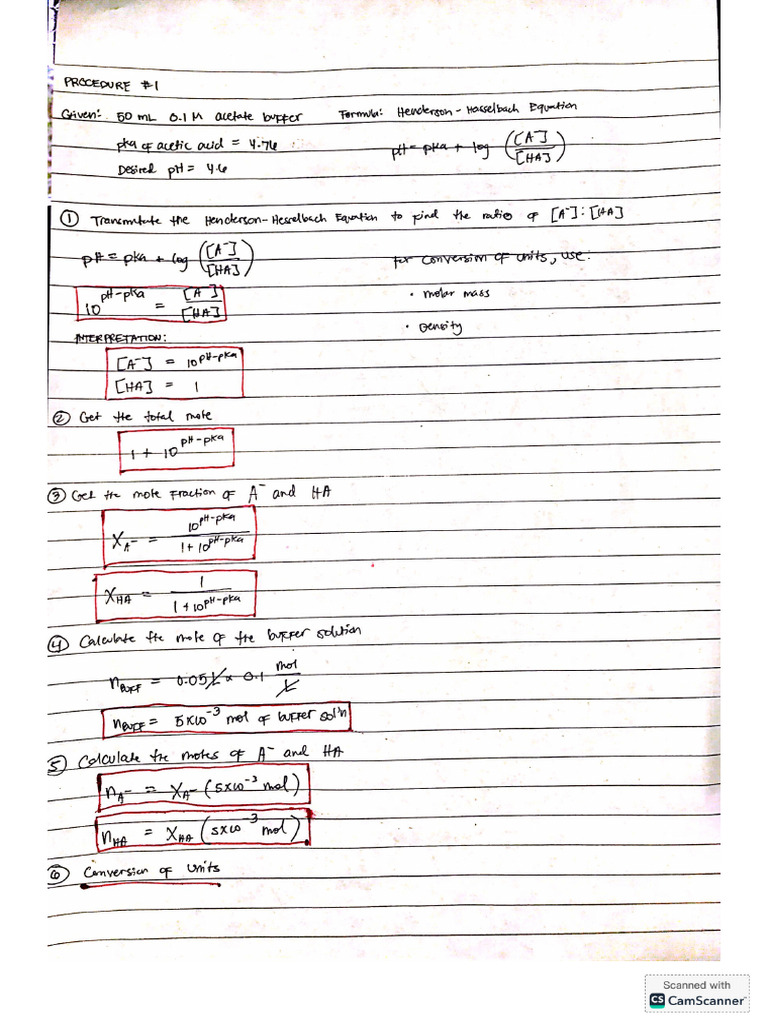 PROCEDURE #1
Given: 50 mL 0.1 M acetate buffer Formula: Henderson-Hasselbach Equation
pka of acetic acid = 4.76 pH = pka + log ([A⁻]/[HA])
Desired pH = 4.6
① Transmutate the Henderson-Hesselbach Equation to find the ratio of [A⁻]:[HA]
pH = pka + log ([A⁻]/[HA]) for conversion of units, use:
10^(pH-pka) = [A⁻]/[HA] • molar mass
• Density
INTERPRETATION:
[A⁻] = 10^(pH-pka)
[HA] = 1
② Get the total mole
1 + 10^(pH-pka)
③ Get the mole fraction of A⁻ and HA
X_A⁻ = 10^(pH-pka)/(1+10^(pH-pka))
X_HA = 1/(1+10^(pH-pka))
④ Calculate the mole of the buffer solution
n_BUFF = 0.05 L x 0.1 mol/L
n_BUFF = 5x10⁻³ mol of buffer sol'n
⑤ Calculate the moles of A⁻ and HA
n_A⁻ = X_A⁻ (5x10⁻³ mol)
n_HA = X_HA (5x10⁻³ mol)
⑥ Conversion of units
Scanned with
CS CamScanner